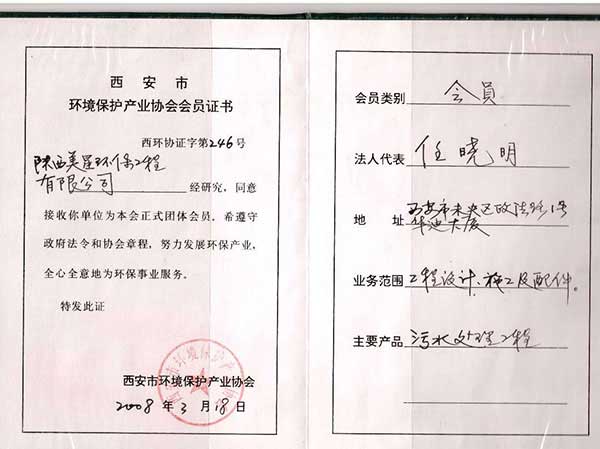 西安市
环境保护产业协会会员证书
西环协证字第246号
陕西美星环保工程
有限公司 经研究，同意
接收你单位为本会正式团体会员。希遵守
政府法令和协会章程，努力发展环保产业，
全心全意地为环保事业服务。
特发此证
西安市环境保护产业协会
西安市环境保护产业协会
2008年3月18日
会员类别 会员
法人代表 任晓明
地址 西安市未央区政法巷1号
华迪大厦
业务范围 工程设计、施工及配件。
主要产品 污水处理工程